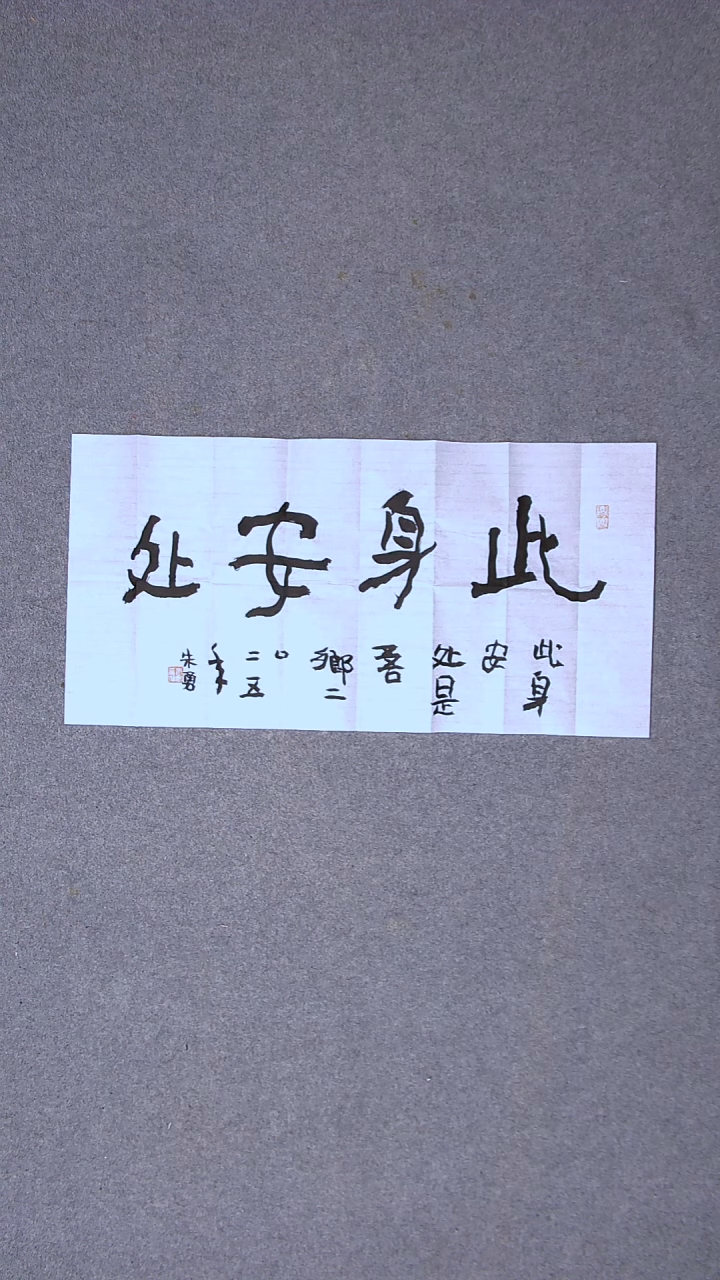 此身安处
此身
安
处是
吾
鄉二
〇
二五
年
朱勇